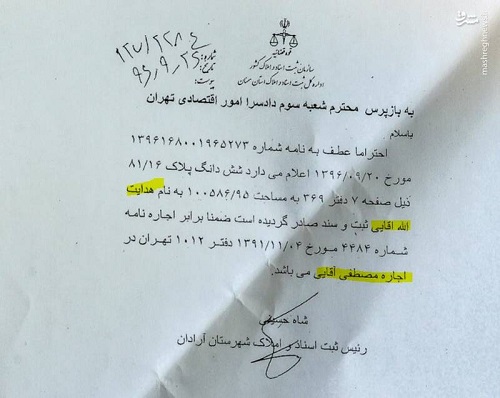 قوه قضائیه
سازمان ثبت اسناد و املاک کشور
اداره کل ثبت اسناد و املاک استان سمنان
شماره: ۱۲۷/۲۲۸۴
تاریخ: ۹۶,۹,۲۶
پیوست:
به بازپرس محترم شعبه سوم دادسرا امور اقتصادی تهران
باسلام
احتراما عطف به نامه شماره ۱۳۹۶۱۶۸۰۰۱۹۶۵۲۷۳
مورخ ۱۳۹۶/۰۹/۲۰ اعلام می دارد شش دانگ پلاک ۸۱/۱۶
ذیل صفحه ۷ دفتر ۳۶۹ به مساحت ۱۰۰۵۸۶/۹۵ به نام هدایت
الله اقایی ثبت و سند صادر گردیده است ضمنا برابر اجاره نامه
شماره ۴۴۸۴ مورخ ۱۳۹۱/۱۱/۰۴ دفتر ۱۰۱۲ تهران در
اجاره مصطفی آقایی می باشد.
شاه حسینی
رئیس ثبت اسناد و املاک شهرستان آرادان
مشرق
mashreghnews.ir